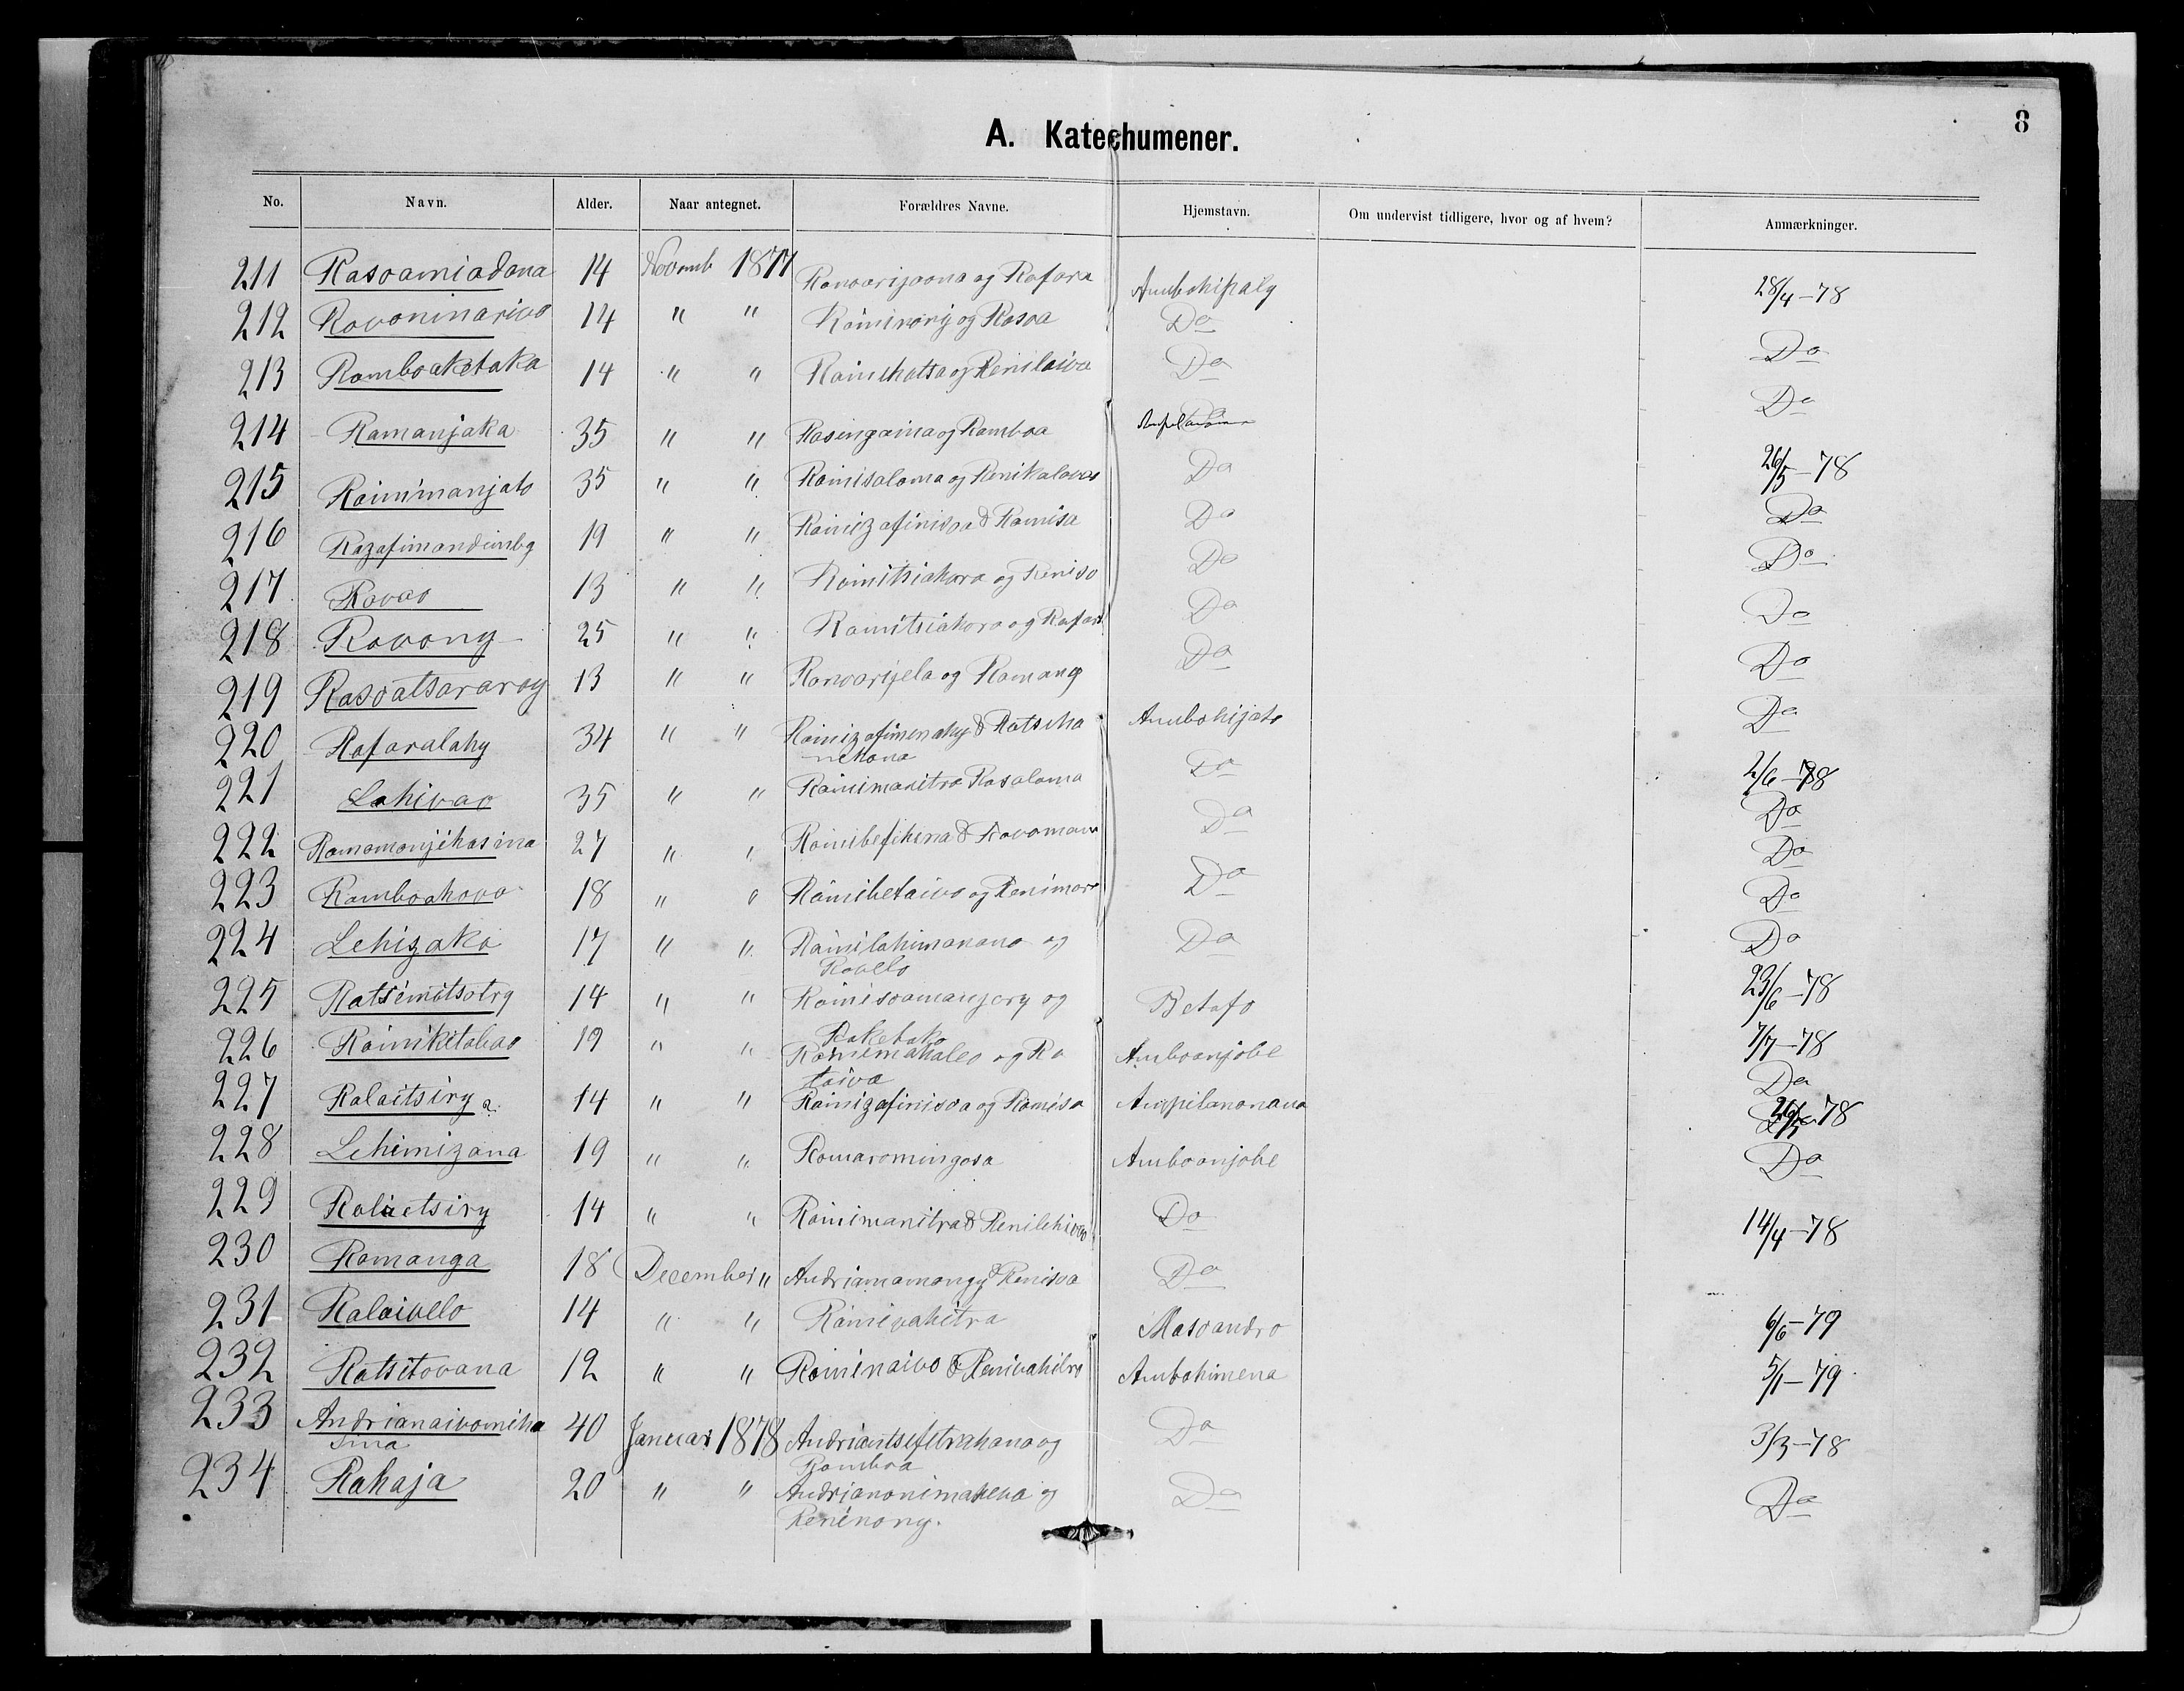 8
A. Katechumener.
No. Navn. Alder. Naar antegnet. Forældres Navne. Hjemstavn. Om undervist tidligere, hvor og af hvem? Anmærkninger.
211 Rasoamiadana 14 Novemb 1877 Ranoarijaona og Rafara Ambohipaly 28/4-78
212 Ravoninarivo 14 " " Raininory og Rasoa Do Do
213 Ramboaketaka 14 " " Rainihatsa og Renilaiva Do Do
214 Ramanjaka 35 " " Rasengaina og Ramboa 26/5-78
215 Rainimanjato 35 " " Rainisaloma og Renikalavao Do Do
216 Razafimandimby 19 " " Rainizafinisoa & Ramisa Do Do
217 Ravao 13 " " Rainitsiahora og Reniso Do Do
218 Ravony 25 " " Rainitsiahora og Rafara Do Do
219 Rasoatsararay 13 " " Ranoarijela og Ramang Do Do
220 Rafaralahy 34 " " Rainizafimenahy & Ratsima Ambohijato 2/6-78
nehana
221 Lahivao 35 " " Rainimanitra Rasaloma Do Do
222 Ramamonjihasina 27 " " Rainibefihena & Ravomana Do Do
223 Ramboahova 18 " " Rainibetaivo og Renimara Do Do
224 Lehizaka 17 " " Rainilahimanana og Do Do
Ravelo
225 Ratsimitsotry 14 " " Rainisoamanjary og Betafo 23/6-78
Raketaka
226 Rainiketabao 19 " " Rainimahaleo og Ra Amboanjobe 7/7-78
taiva
227 Ralaitsiry a. 14 " " Rainizafinisoa og Ramisa Ampilanonana Do
228 Lehimizana 19 " " Ramaromingosa Amboanjobe Do
26/5-78
229 Ralaitsiry 14 " " Rainimanitra & Renilehivao Do 14/4-78
230 Ramanga 18 December " Andriamamongy & Renisoa Do
231 Ralaivelo 14 " " Rainivahitra Masoandro 6/6-79
232 Ratsitovana 12 " " Raininaivo & Renivahitra Ambohimena 5/1-79
233 Andrianaivomiha 40 Januar 1878 Andriantsefetrahana og Do 3/3-78
sina Ramboa
234 Rahaja 20 " " Andrianonimahena og Do Do
Reninony.